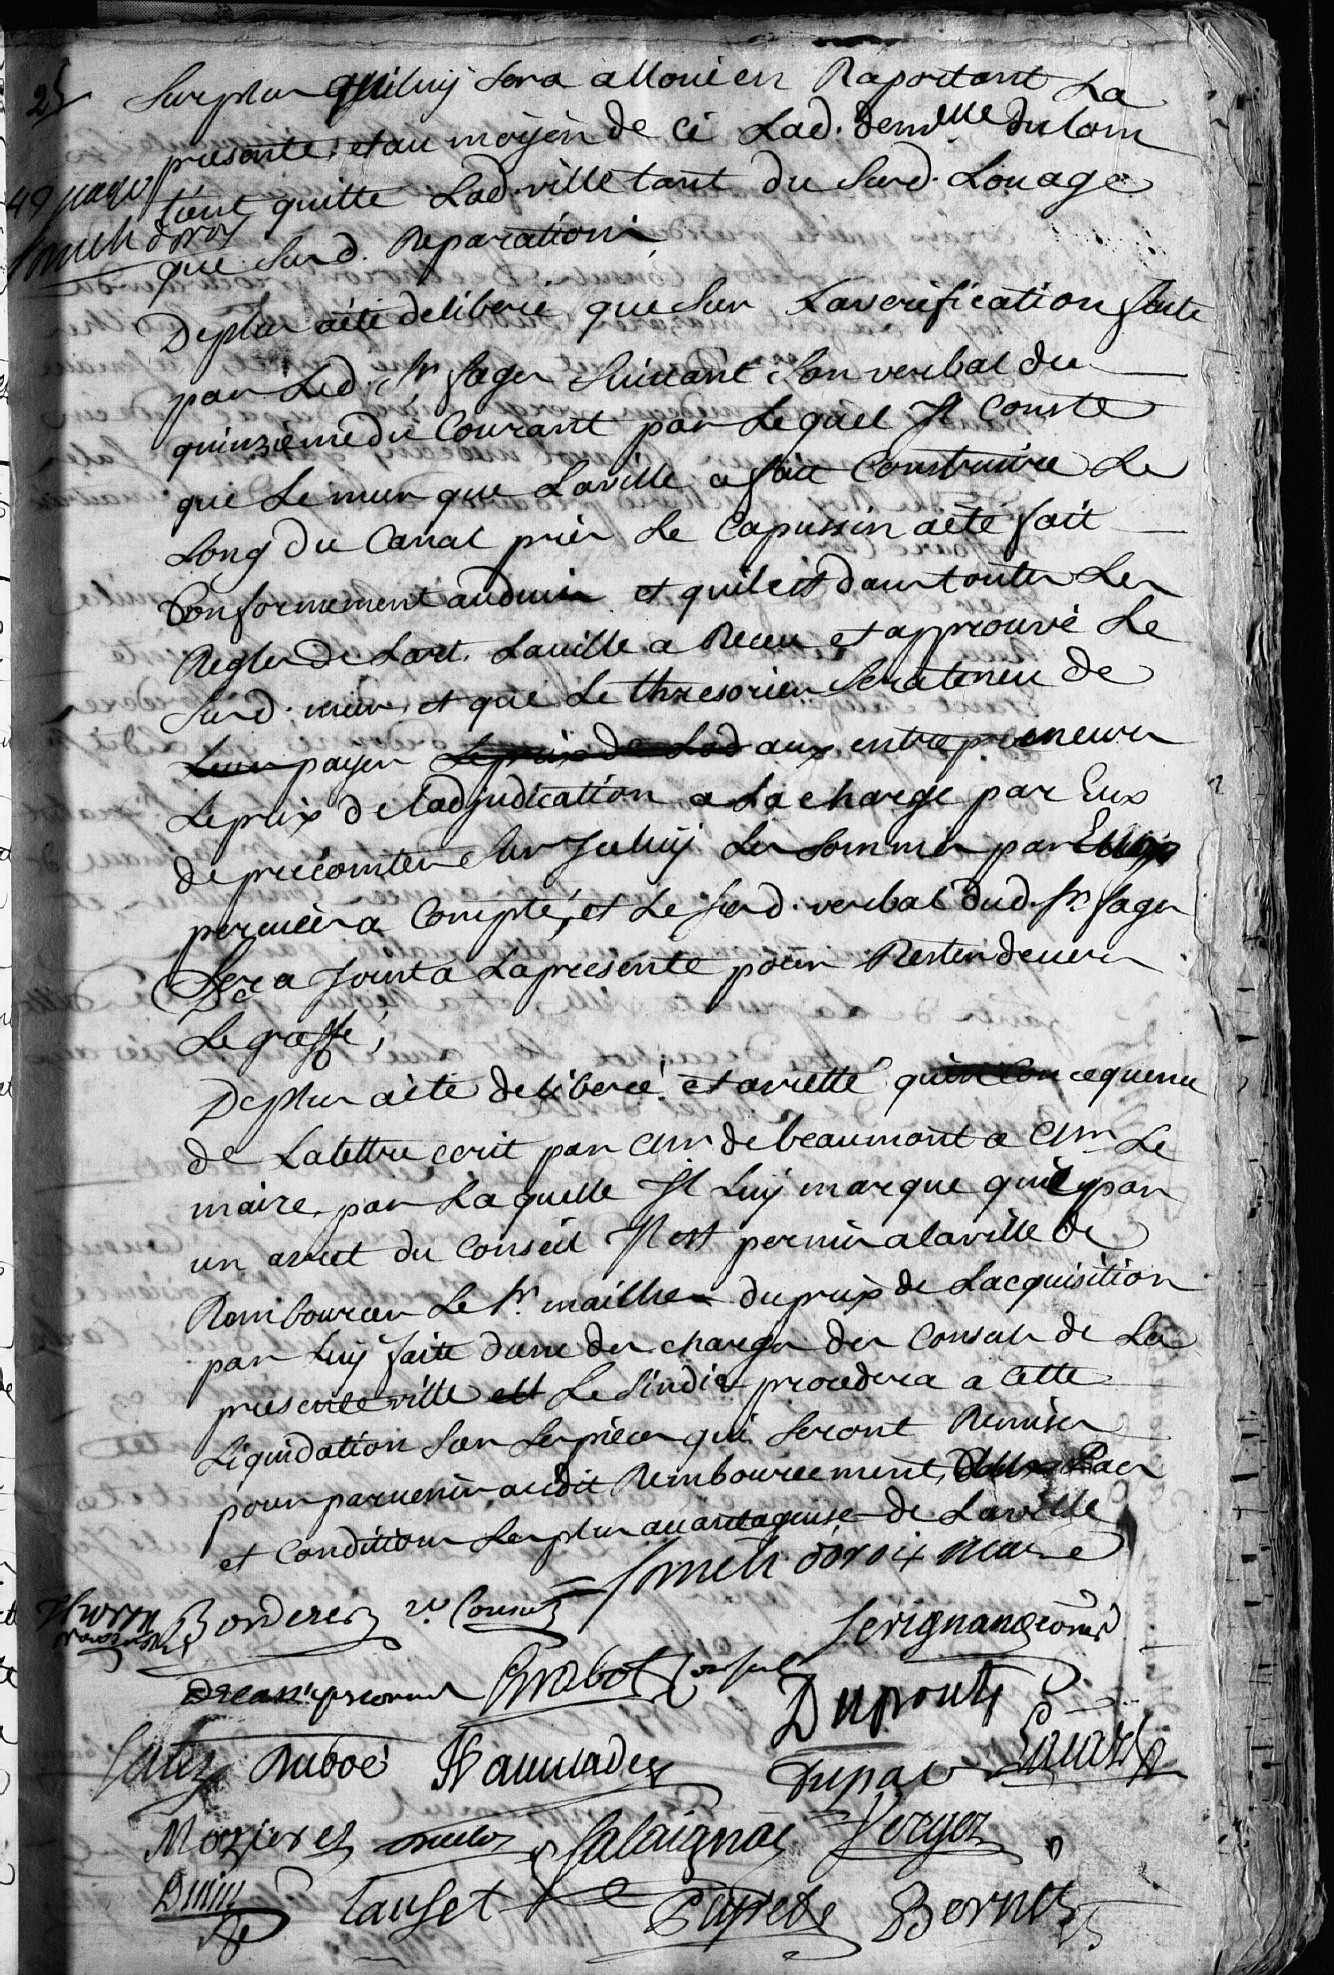 25
Surplus quiluy sera alloué en Raportant La
presente; et au moyen de ce Lad. dem.elle dulom
49 page
tient quitte Lad. ville tant du Susd. Louage
que Susd. Reparations
Deplus aété deliberé que Sur Laverification faite
par Led. Sr fages Suivant Son verbal du
quinzieme du Courant par Lequel Il Conste
que Le mur que Laville a fait Construire Le
Long du Canal prés Le Capussin aété fait
Conformement audevis et quilest dans toutes Les
Regles de Lart. Laville a Receu et approuvé Le
Susd. mur, et que Le thresorier Seratenu de
payer aux entrepreneurs
Leprix de Ladjudication a La charge par Eux
de precomter Sur Iceluy Les Sommes par Eux
perceues a Compte, et Le Susd. verbal dud. Sr fages
Sera Joint a Lapresente pour Rester devers
Le graffe;
Deplus aété deliberé et arretté quen Concequence
de Lalettre ecrit par Mr de beaumont a Mr Le
maire, par Laquelle Il Luy marque que par
un arret du Conseil Il est permis alaville de
Rembourcer Le Sr. mailhes duprix de Lacquisition
par Luy faite dune des charges des Consuls de La
presente ville Le Sindic procedera a Cette
Liquidation Sur Lespieces qui Seront Remises
pour parvenir audit Rembourcement, Pacx
et Conditions Lesplus avantageuse de Laville
Bordere 2e Consul
Serignan consul
Brabot Consul
Duprouts
Duboé
Dupac
Mozieres
Salaignac
Verger
Lauset
Peyrede
Bornet